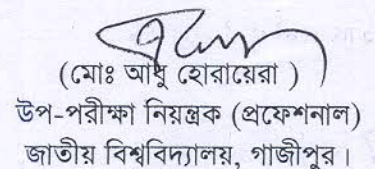 (মোঃ আবু হোরায়েরা )
উপ-পরীক্ষা নিয়ন্ত্রক (প্রফেশনাল)
জাতীয় বিশ্ববিদ্যালয়, গাজীপুর।